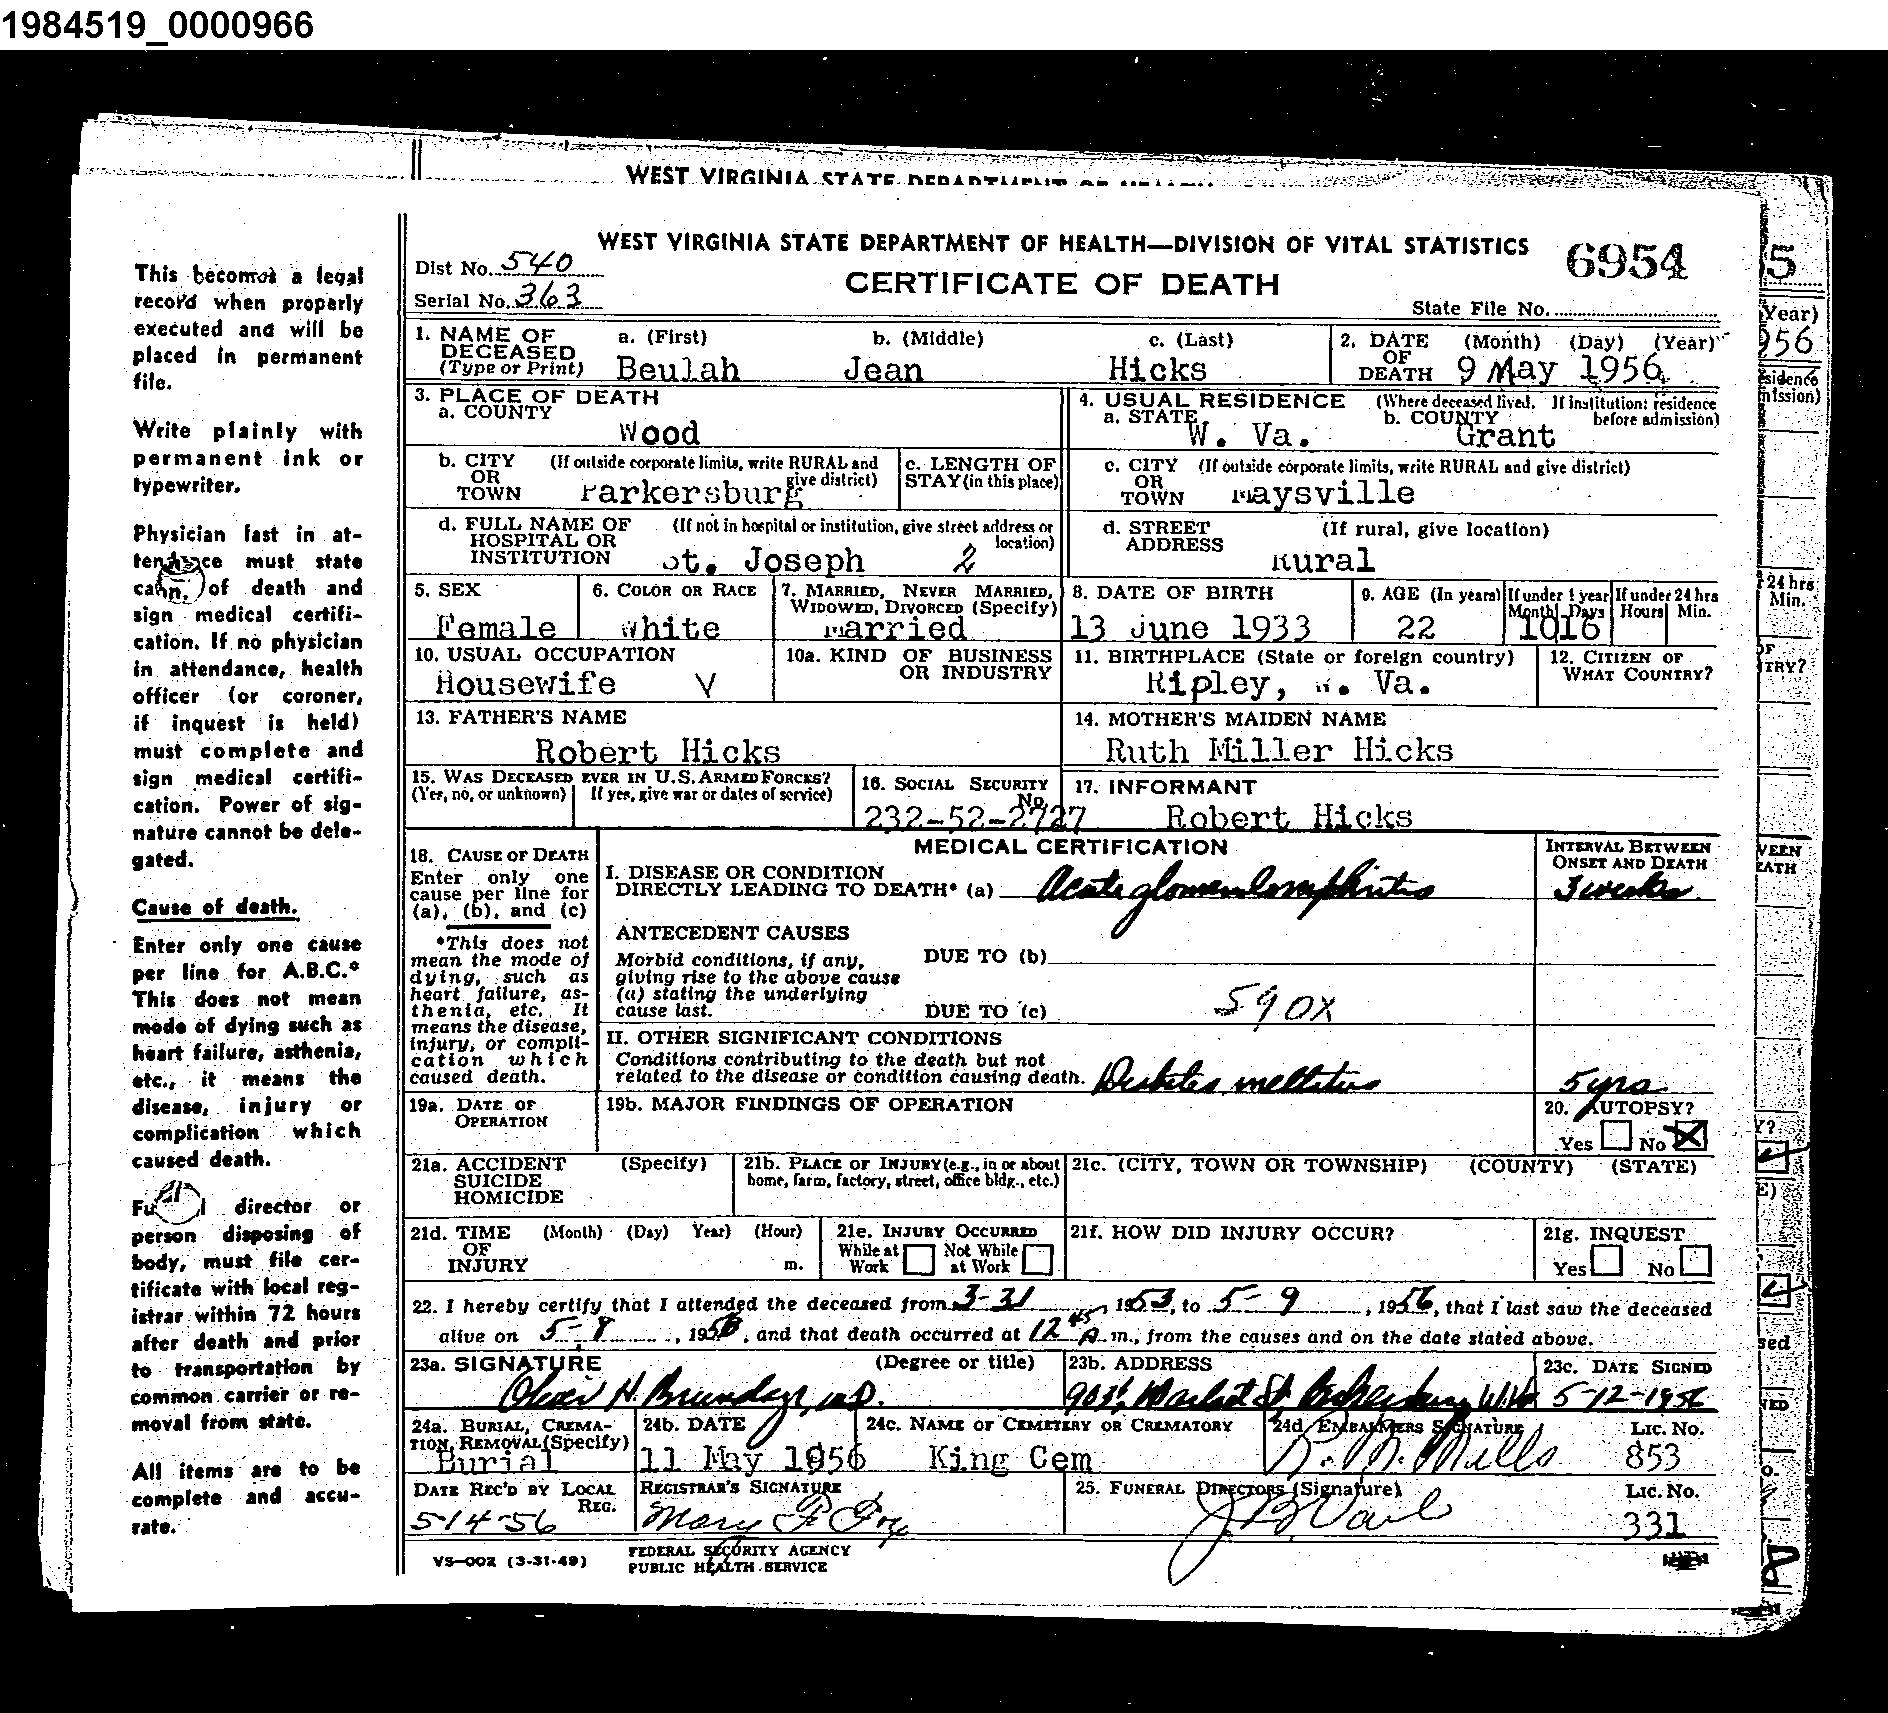 1984519_0000966
WEST VIRGINIA STATE DEPARTMENT OF HEALTH
WEST VIRGINIA STATE DEPARTMENT OF HEALTH—DIVISION OF VITAL STATISTICS
6954
Dist No. 540
CERTIFICATE OF DEATH
Serial No. 363
State File No.
This becomes a legal
record when properly
executed and will be
placed in permanent
file.
Write plainly with
permanent ink or
typewriter.
Physician last in at-
tendance must state
of death and
sign medical certifi-
cation. If no physician
in attendance, health
officer (or coroner,
if inquest is held)
must complete and
sign medical certifi-
cation. Power of sig-
nature cannot be dele-
gated.
Cause of death.
Enter only one cause
per line for A.B.C.*
This does not mean
mode of dying such as
heart failure, asthenia,
etc., it means the
disease, injury or
complication which
caused death.
director or
person disposing of
body, must file cer-
tificate with local reg-
istrar within 72 hours
after death and prior
to transportation by
common carrier or re-
moval from state.
All items are to be
complete and accu-
rate.
1. NAME OF DECEASED (Type or Print) a. (First) b. (Middle) c. (Last)
Beulah Jean Hicks
2. DATE OF DEATH (Month) (Day) (Year)
9 May 1956
3. PLACE OF DEATH
a. COUNTY
Wood
4. USUAL RESIDENCE (Where deceased lived. If institution: residence before admission)
a. STATE W. Va. b. COUNTY Grant
b. CITY OR TOWN (If outside corporate limits, write RURAL and give district)
Parkersburg
c. LENGTH OF STAY (in this place)
c. CITY OR TOWN (If outside corporate limits, write RURAL and give district)
Maysville
d. FULL NAME OF HOSPITAL OR INSTITUTION (If not in hospital or institution, give street address or location)
St. Joseph 2
d. STREET ADDRESS (If rural, give location)
Rural
5. SEX
Female
6. COLOR OR RACE
White
7. MARRIED, NEVER MARRIED, WIDOWED, DIVORCED (Specify)
Married
8. DATE OF BIRTH
13 June 1933
9. AGE (In years)
22
If under 1 year Month Days
1016
If under 24 hrs Hours Min.
10. USUAL OCCUPATION
Housewife V
10a. KIND OF BUSINESS OR INDUSTRY
11. BIRTHPLACE (State or foreign country)
Ripley, W. Va.
12. CITIZEN OF WHAT COUNTRY?
13. FATHER'S NAME
Robert Hicks
14. MOTHER'S MAIDEN NAME
Ruth Miller Hicks
15. WAS DECEASED EVER IN U.S. ARMED FORCES?
(Yes, no, or unknown) If yes, give war or dates of service)
16. SOCIAL SECURITY No.
232-52-2727
17. INFORMANT
Robert Hicks
MEDICAL CERTIFICATION
18. CAUSE OF DEATH
Enter only one
cause per line for
(a), (b), and (c)
*This does not
mean the mode of
dying, such as
heart failure, as-
thenia, etc. It
means the disease,
injury, or compli-
cation which
caused death.
I. DISEASE OR CONDITION
DIRECTLY LEADING TO DEATH* (a) Acute glomerulonephritis
INTERVAL BETWEEN ONSET AND DEATH
3 weeks
ANTECEDENT CAUSES
Morbid conditions, if any,
giving rise to the above cause
(a) stating the underlying
cause last.
DUE TO (b)
DUE TO (c) 590X
II. OTHER SIGNIFICANT CONDITIONS
Conditions contributing to the death but not
related to the disease or condition causing death. Diabetes mellitus
5 yrs
19a. DATE OF OPERATION
19b. MAJOR FINDINGS OF OPERATION
20. AUTOPSY?
Yes No X
21a. ACCIDENT SUICIDE HOMICIDE (Specify)
21b. PLACE OF INJURY (e.g., in or about home, farm, factory, street, office bldg., etc.)
21c. (CITY, TOWN OR TOWNSHIP) (COUNTY) (STATE)
21d. TIME OF INJURY (Month) (Day) Year) (Hour) m.
21e. INJURY OCCURRED
While at Work Not While at Work
21f. HOW DID INJURY OCCUR?
21g. INQUEST
Yes No
22. I hereby certify that I attended the deceased from 3-31, 1953, to 5-9, 1956, that I last saw the deceased
alive on 5-8, 1956, and that death occurred at 12 45 A m., from the causes and on the date stated above.
23a. SIGNATURE (Degree or title)
H. M.D.
23b. ADDRESS
Market St. Parkersburg W.Va
23c. DATE SIGNED
5-12-1956
24a. BURIAL, CREMATION, REMOVAL (Specify)
Burial
24b. DATE
11 May 1956
24c. NAME OF CEMETERY OR CREMATORY
King Cem
24d EMBALMERS SIGNATURE
R. M. Mills
LIC. NO.
853
DATE REC'D BY LOCAL REG.
5-14-56
REGISTRAR'S SIGNATURE
Mary F.
25. FUNERAL DIRECTORS (Signature)
LIC. NO.
331
VS-002 (3-31-49)
FEDERAL SECURITY AGENCY
PUBLIC HEALTH SERVICE